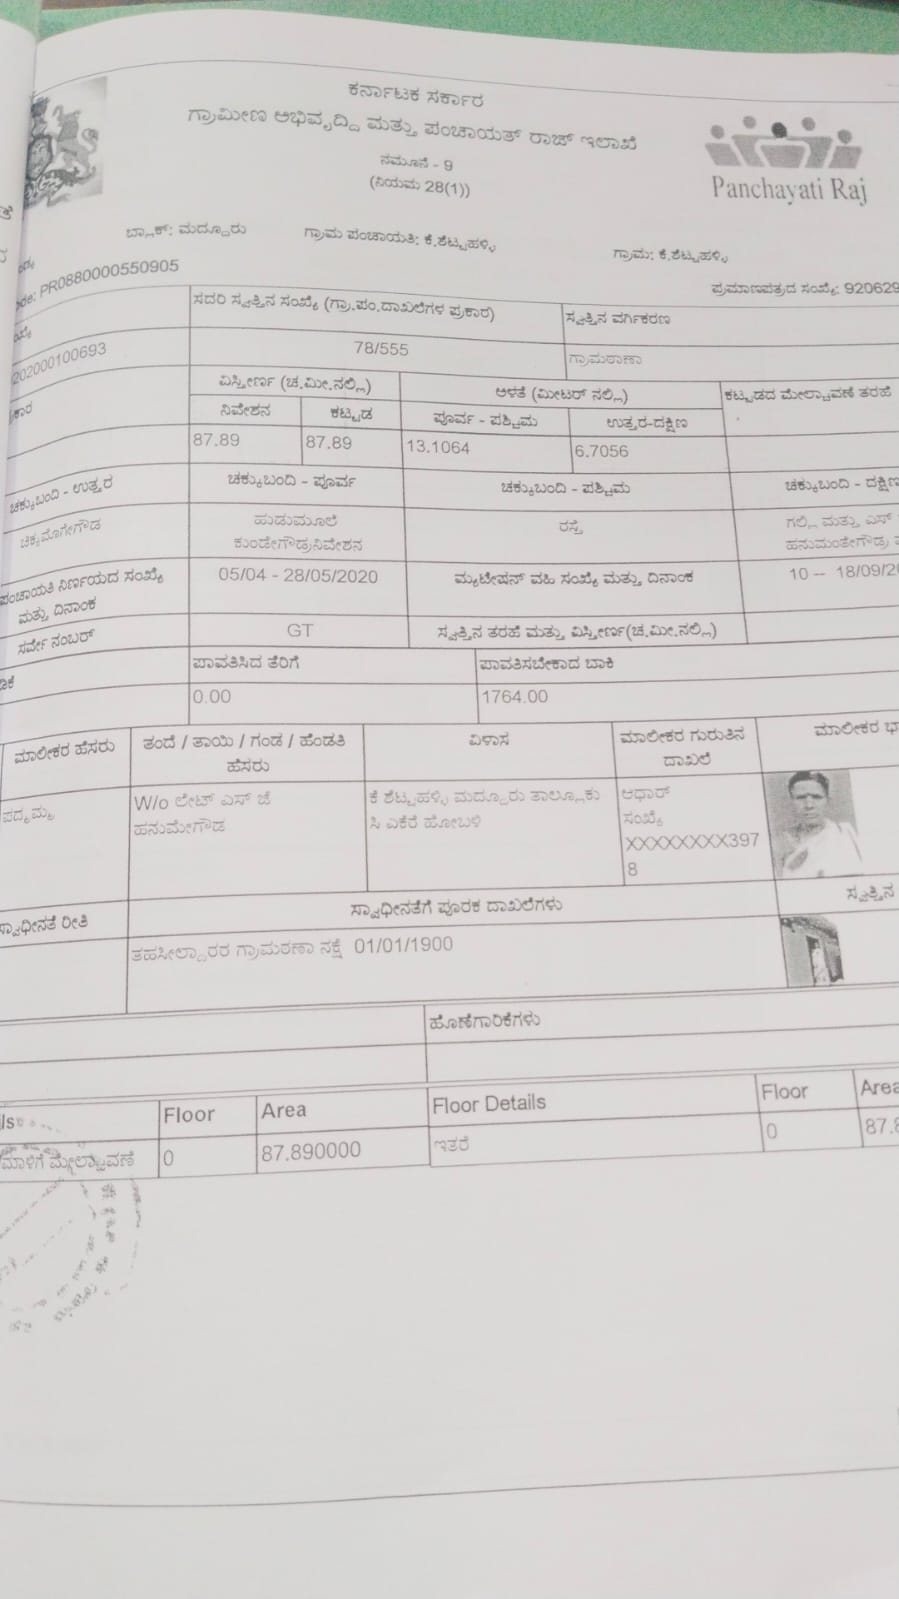 ಕರ್ನಾಟಕ ಸರ್ಕಾರ
ಗ್ರಾಮೀಣ ಅಭಿವೃದ್ಧಿ ಮತ್ತು ಪಂಚಾಯತ್ ರಾಜ್ ಇಲಾಖೆ
ನಮೂನೆ - 9
(ನಿಯಮ 28(1))
Panchayati Raj
ಬ್ಲಾಕ್: ಮದ್ದೂರು ಗ್ರಾಮ ಪಂಚಾಯತಿ: ಕೆ.ಶೆಟ್ಟಹಳ್ಳಿ ಗ್ರಾಮ: ಕೆ.ಶೆಟ್ಟಹಳ್ಳಿ
PR0880000550905 ಪ್ರಮಾಣಪತ್ರದ ಸಂಖ್ಯೆ: 920629
ಸದರಿ ಸ್ವತ್ತಿನ ಸಂಖ್ಯೆ (ಗ್ರಾ.ಪಂ.ದಾಖಲೆಗಳ ಪ್ರಕಾರ) ಸ್ವತ್ತಿನ ವರ್ಗೀಕರಣ
202000100693 78/555 ಗ್ರಾಮಠಾಣಾ
ವಿಸ್ತೀರ್ಣ (ಚ.ಮೀ.ನಲ್ಲಿ) ಅಳತೆ (ಮೀಟರ್ ನಲ್ಲಿ) ಕಟ್ಟಡದ ಮೇಲ್ಚಾವಣೆ ತರಹೆ
ನಿವೇಶನ ಕಟ್ಟಡ ಪೂರ್ವ - ಪಶ್ಚಿಮ ಉತ್ತರ-ದಕ್ಷಿಣ
87.89 87.89 13.1064 6.7056
ಚಕ್ಕುಬಂದಿ - ಉತ್ತರ ಚಕ್ಕುಬಂದಿ - ಪೂರ್ವ ಚಕ್ಕುಬಂದಿ - ಪಶ್ಚಿಮ ಚಕ್ಕುಬಂದಿ - ದಕ್ಷಿಣ
ಚಿಕ್ಕಮೊಗೇಗೌಡ ಹುಡುಮೂಲೆ ರಸ್ತೆ ಗಲ್ಲಿ ಮತ್ತು ಎಸ್
ಕುಂಡೇಗೌಡ್ರನಿವೇಶನ ಹನುಮಂತೇಗೌಡ್ರ
ಪಂಚಾಯತಿ ನಿರ್ಣಯದ ಸಂಖ್ಯೆ 05/04 - 28/05/2020 ಮ್ಯುಟೇಷನ್ ವಹಿ ಸಂಖ್ಯೆ ಮತ್ತು ದಿನಾಂಕ 10 -- 18/09/20
ಮತ್ತು ದಿನಾಂಕ
ಸರ್ವೇ ನಂಬರ್ GT ಸ್ವತ್ತಿನ ತರಹೆ ಮತ್ತು ವಿಸ್ತೀರ್ಣ(ಚ.ಮೀ.ನಲ್ಲಿ)
ಪಾವತಿಸಿದ ತೆರಿಗೆ ಪಾವತಿಸಬೇಕಾದ ಬಾಕಿ
0.00 1764.00
ಮಾಲೀಕರ ಹೆಸರು ತಂದೆ / ತಾಯಿ / ಗಂಡ / ಹೆಂಡತಿ ವಿಳಾಸ ಮಾಲೀಕರ ಗುರುತಿನ ಮಾಲೀಕರ
ಹೆಸರು ದಾಖಲೆ
ಪದ್ಮಮ್ಮ W/o ಲೇಟ್ ಎಸ್ ಜೆ ಕೆ ಶೆಟ್ಟಹಳ್ಳಿ ಮದ್ದೂರು ತಾಲ್ಲೂಕು ಆಧಾರ್
ಹನುಮೇಗೌಡ ಸಿ ಎಕೆರೆ ಹೋಬಳಿ ಸಂಖ್ಯೆ
XXXXXXXX397
8
ಸ್ವಾಧೀನತೆ ರೀತಿ ಸ್ವಾಧೀನತೆಗೆ ಪೂರಕ ದಾಖಲೆಗಳು ಸ್ವತ್ತಿನ
ತಹಸೀಲ್ದಾರರ ಗ್ರಾಮಠಣಾ ನಕ್ಷೆ 01/01/1900
ಹೊಣೆಗಾರಿಕೆಗಳು
Floor Area Floor Details Floor Area
ಮಾಳಿಗೆ ಮೇಲ್ಚಾವಣೆ 0 87.890000 ಇತರೆ 0 87.8